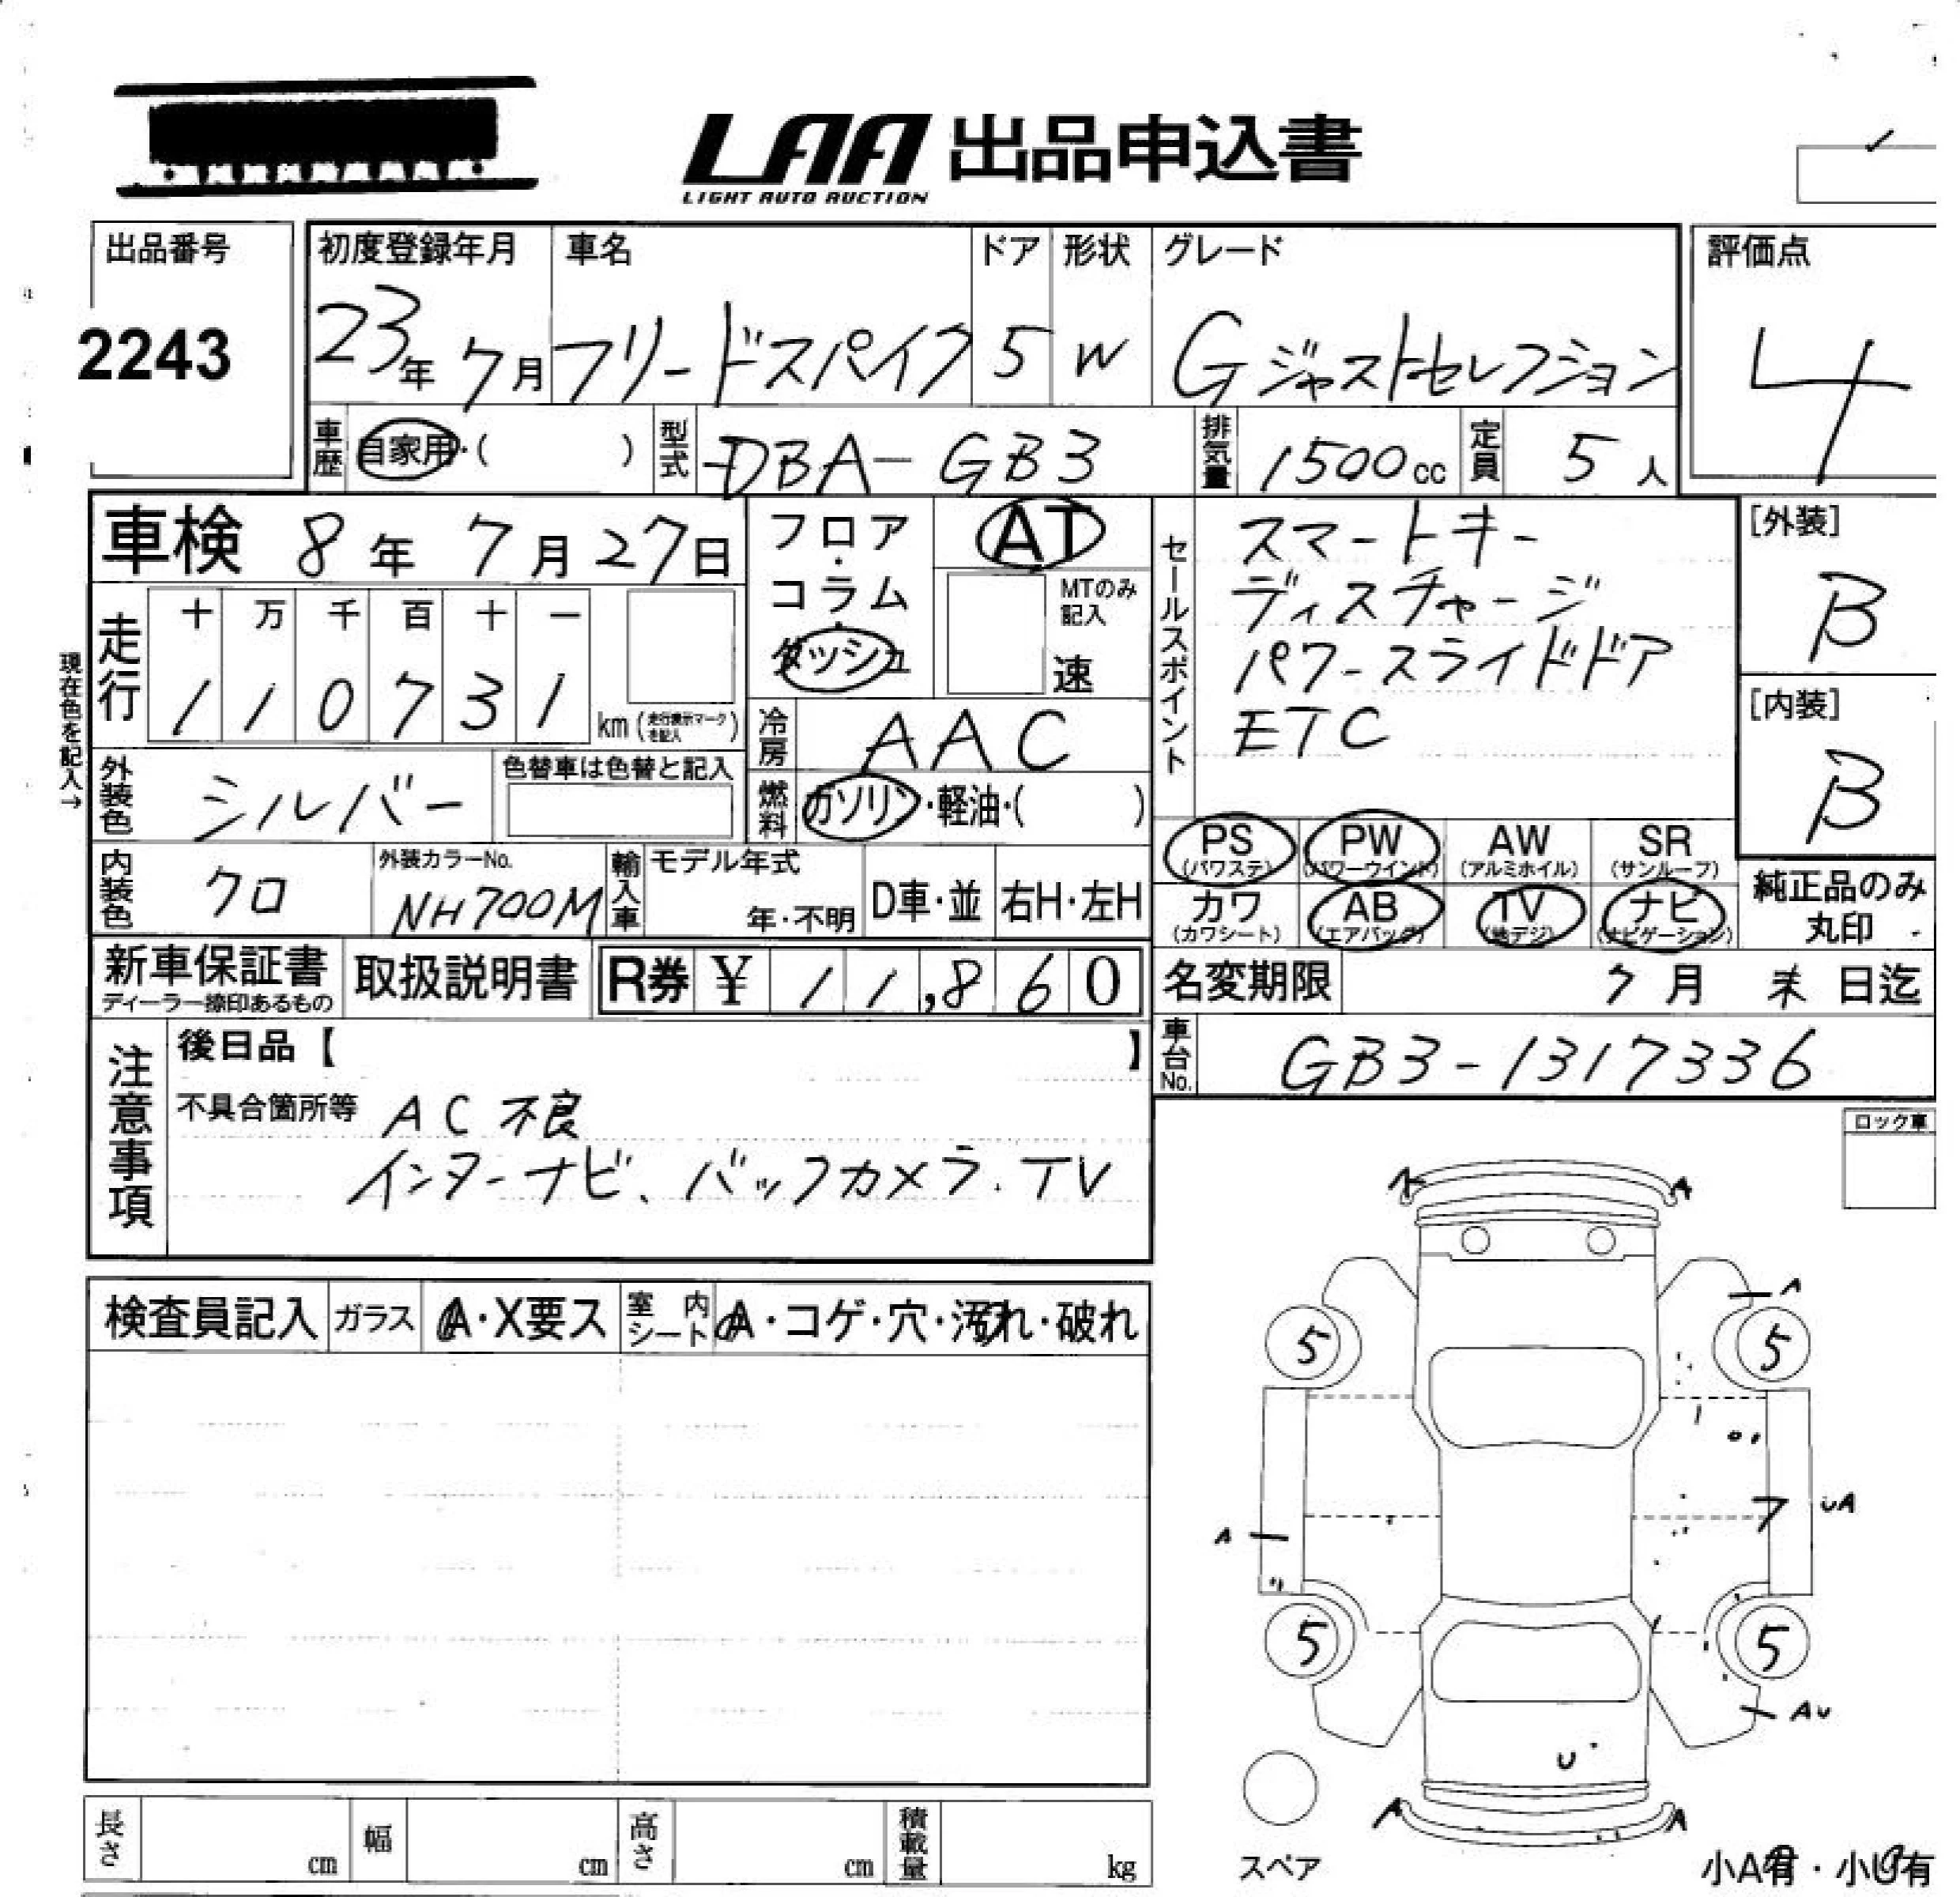 LAA 出品申込書
LIGHT AUTO AUCTION
出品番号
2243
初度登録年月 車名 ドア 形状 グレード
23年 7月 フリードスパイク 5 W Gジャストセレクション
評価点
4
車歴 自家用・( ) 型式 DBA-GB3 排気量 1500cc 定員 5人
車検 8年 7月 27日
フロア・コラム・ダッシュ
AT
MTのみ記入
速
セールスポイント
スマートキー
ディスチャージ
パワースライドドア
ETC
[外装]
B
[内装]
B
現在色を記入→
走行
十 万 千 百 十 一
1 1 0 7 3 1 km (走行表示マークを記入)
冷房 AAC
外装色 シルバー 色替車は色替と記入
燃料 ガソリン・軽油・( )
PS PW AW SR
(パワステ) (パワーウインド) (アルミホイル) (サンルーフ)
カワ AB TV ナビ
(カワシート) (エアバッグ) (地デジ) (ナビゲーション)
純正品のみ
丸印
内装色 クロ 外装カラーNo. NH700M 輸入車 モデル年式 年・不明 D車・並 右H・左H
新車保証書
ディーラー捺印あるもの
取扱説明書 R券 ¥ 11,860
名変期限 7月 末 日迄
車台No. GB3-1317336
注意事項
後日品【 】
不具合箇所等 AC不良
インターナビ、バックカメラ.TV
ロック車
検査員記入 ガラス A・X要ス 室内シート A・コゲ・穴・汚れ・破れ
A A
A
5 5
UA
A
5 5
AU
U
A A
スペア
小A有・小U有
長さ cm 幅 cm 高さ cm 積載量 kg